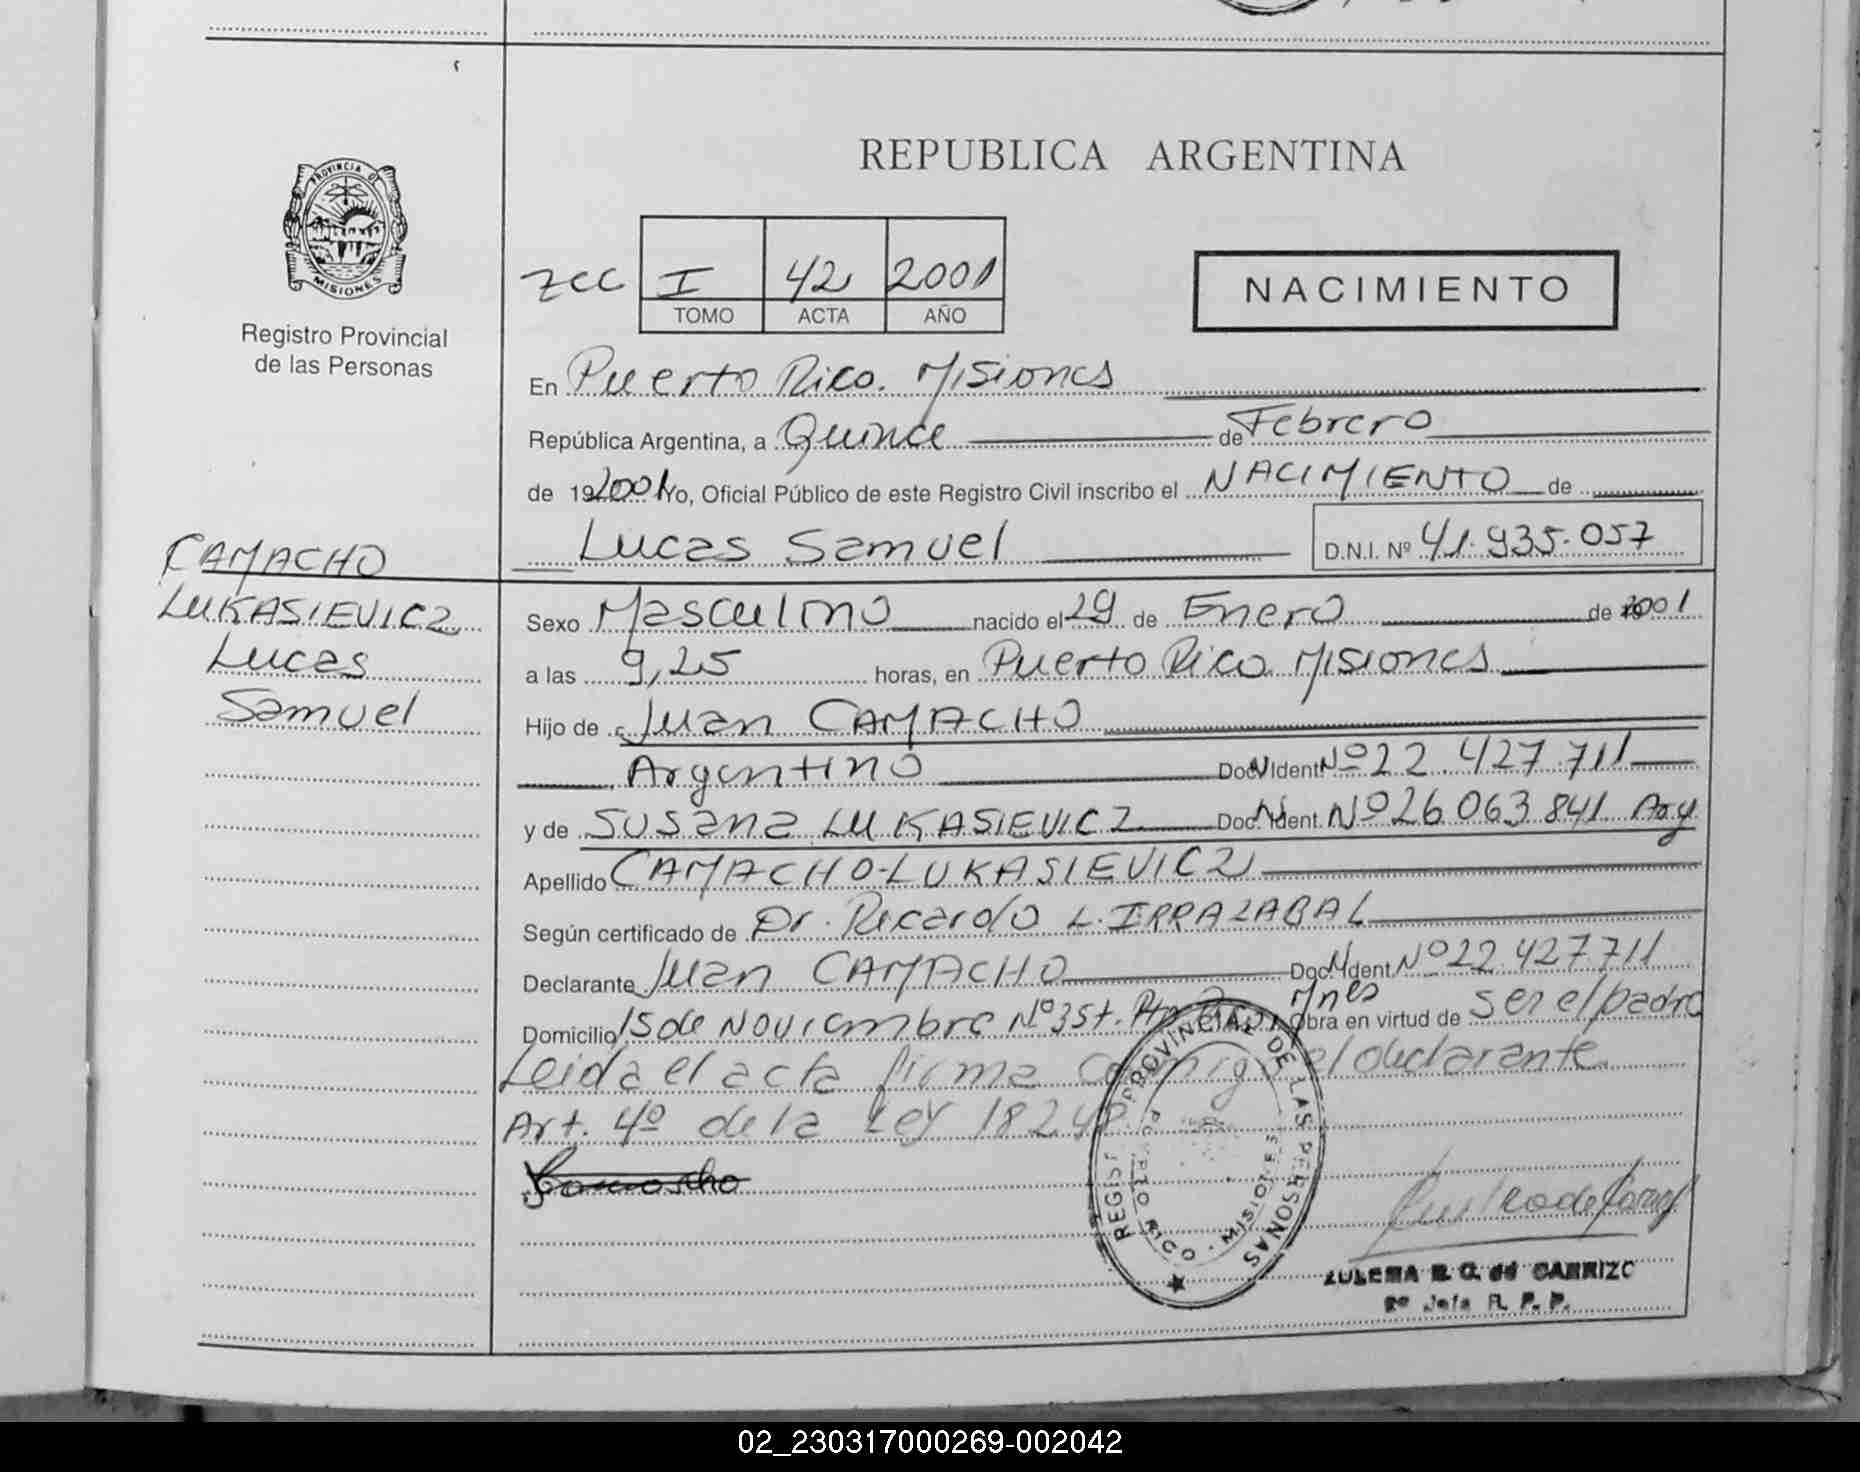 REPUBLICA ARGENTINA
PROVINCIA DE
MISIONES
Registro Provincial
de las Personas
zcc I 42 2001
TOMO ACTA AÑO
NACIMIENTO
En Puerto Rico. Misiones
República Argentina, a Quince de Febrero
de 192001 Yo, Oficial Público de este Registro Civil inscribo el NACIMIENTO de
Lucas Samuel D.N.I. Nº 41.935.057
CAMACHO
LUKASIEVICZ
Lucas
Samuel
Sexo Masculino nacido el 29 de Enero de 2001
a las 9,25 horas, en Puerto Rico. Misiones
Hijo de Juan CAMACHO
Argentino Doc. N Ident. Nº 22.427.711
y de Susana LUKASIEVICZ Doc. N Ident. Nº 26 063 841 Arg
Apellido CAMACHO-LUKASIEVICZ
Según certificado de Dr. Ricardo L. IRRAZABAL
Declarante Juan CAMACHO Doc. N Ident. Nº 22 427 711
Domicilio 15 de Noviembre Nº 35 Mnes Obra en virtud de ser el padre
Leida el acta firma conmigo el declarante
Art. 4º de la Ley 18248.
REGIST PROVINCIAL DE LAS PERSONAS
PUERTO RICO - MISIONES
ZULEMA E. C. de CARRIZO
2º Jefe R. P. P.
02_230317000269-002042